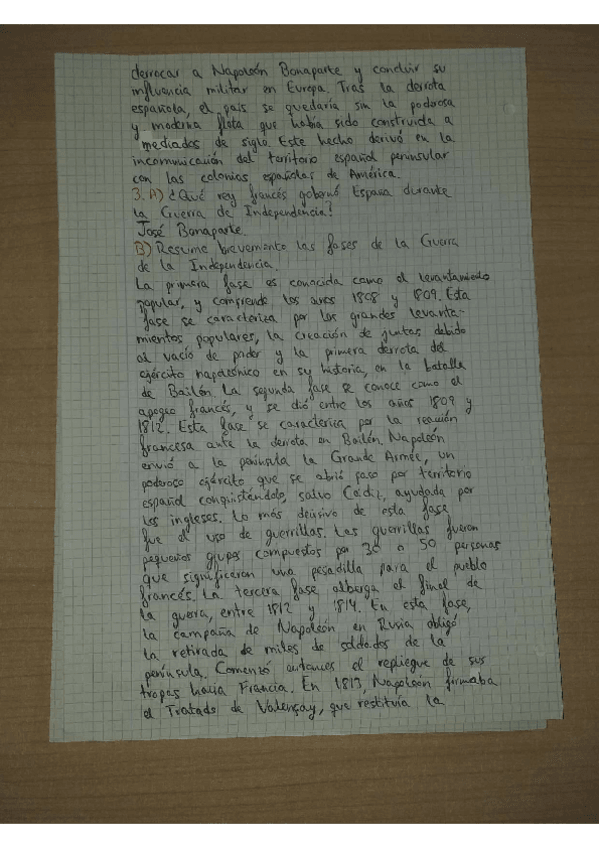 derrocar a Napoleón Bonaparte y concluir su
influencia militar en Europa. Tras la derrota
española, el país se quedaría sin la poderosa
y moderna flota que había sido construida a
mediados de siglo. Este hecho derivó en la
incomunicación del territorio español peninsular
con las colonias españolas de América.
3. A) ¿Qué rey francés gobernó España durante
la Guerra de Independencia?
José Bonaparte.
B) Resume brevemente las fases de la Guerra
de la Independencia.
La primera fase es conocida como el levantamiento
popular, y comprende los años 1808 y 1809. Esta
fase se caracteriza por los grandes levanta-
mientos populares, la creación de juntas debido
al vacío de poder y la primera derrota del
ejército napoleónico en su historia, en la batalla
de Bailén. La segunda fase se conoce como el
apogeo francés, y se dió entre los años 1809 y
1812. Esta fase se caracteriza por la reacción
francesa ante la derrota en Bailén. Napoleón
envió a la península la Grande Armée, un
poderoso ejército que se abrió paso por territorio
español conquistándolo, salvo Cádiz, ayudada por
los ingleses. Lo más decisivo de esta fase
fue el uso de guerrillas. Las guerrillas fueron
pequeños grupos compuestos por 30 o 50 personas
que significaron una pesadilla para el pueblo
francés. La tercera fase alberga el final de
la guerra, entre 1812 y 1814. En esta fase,
la campaña de Napoleón en Rusia obligó
la retirada de miles de soldados de la
península. Comenzó entonces el repliegue de sus
tropas hacia Francia. En 1813 Napoleón firmaba
el Tratado de Valençay, que restituría la